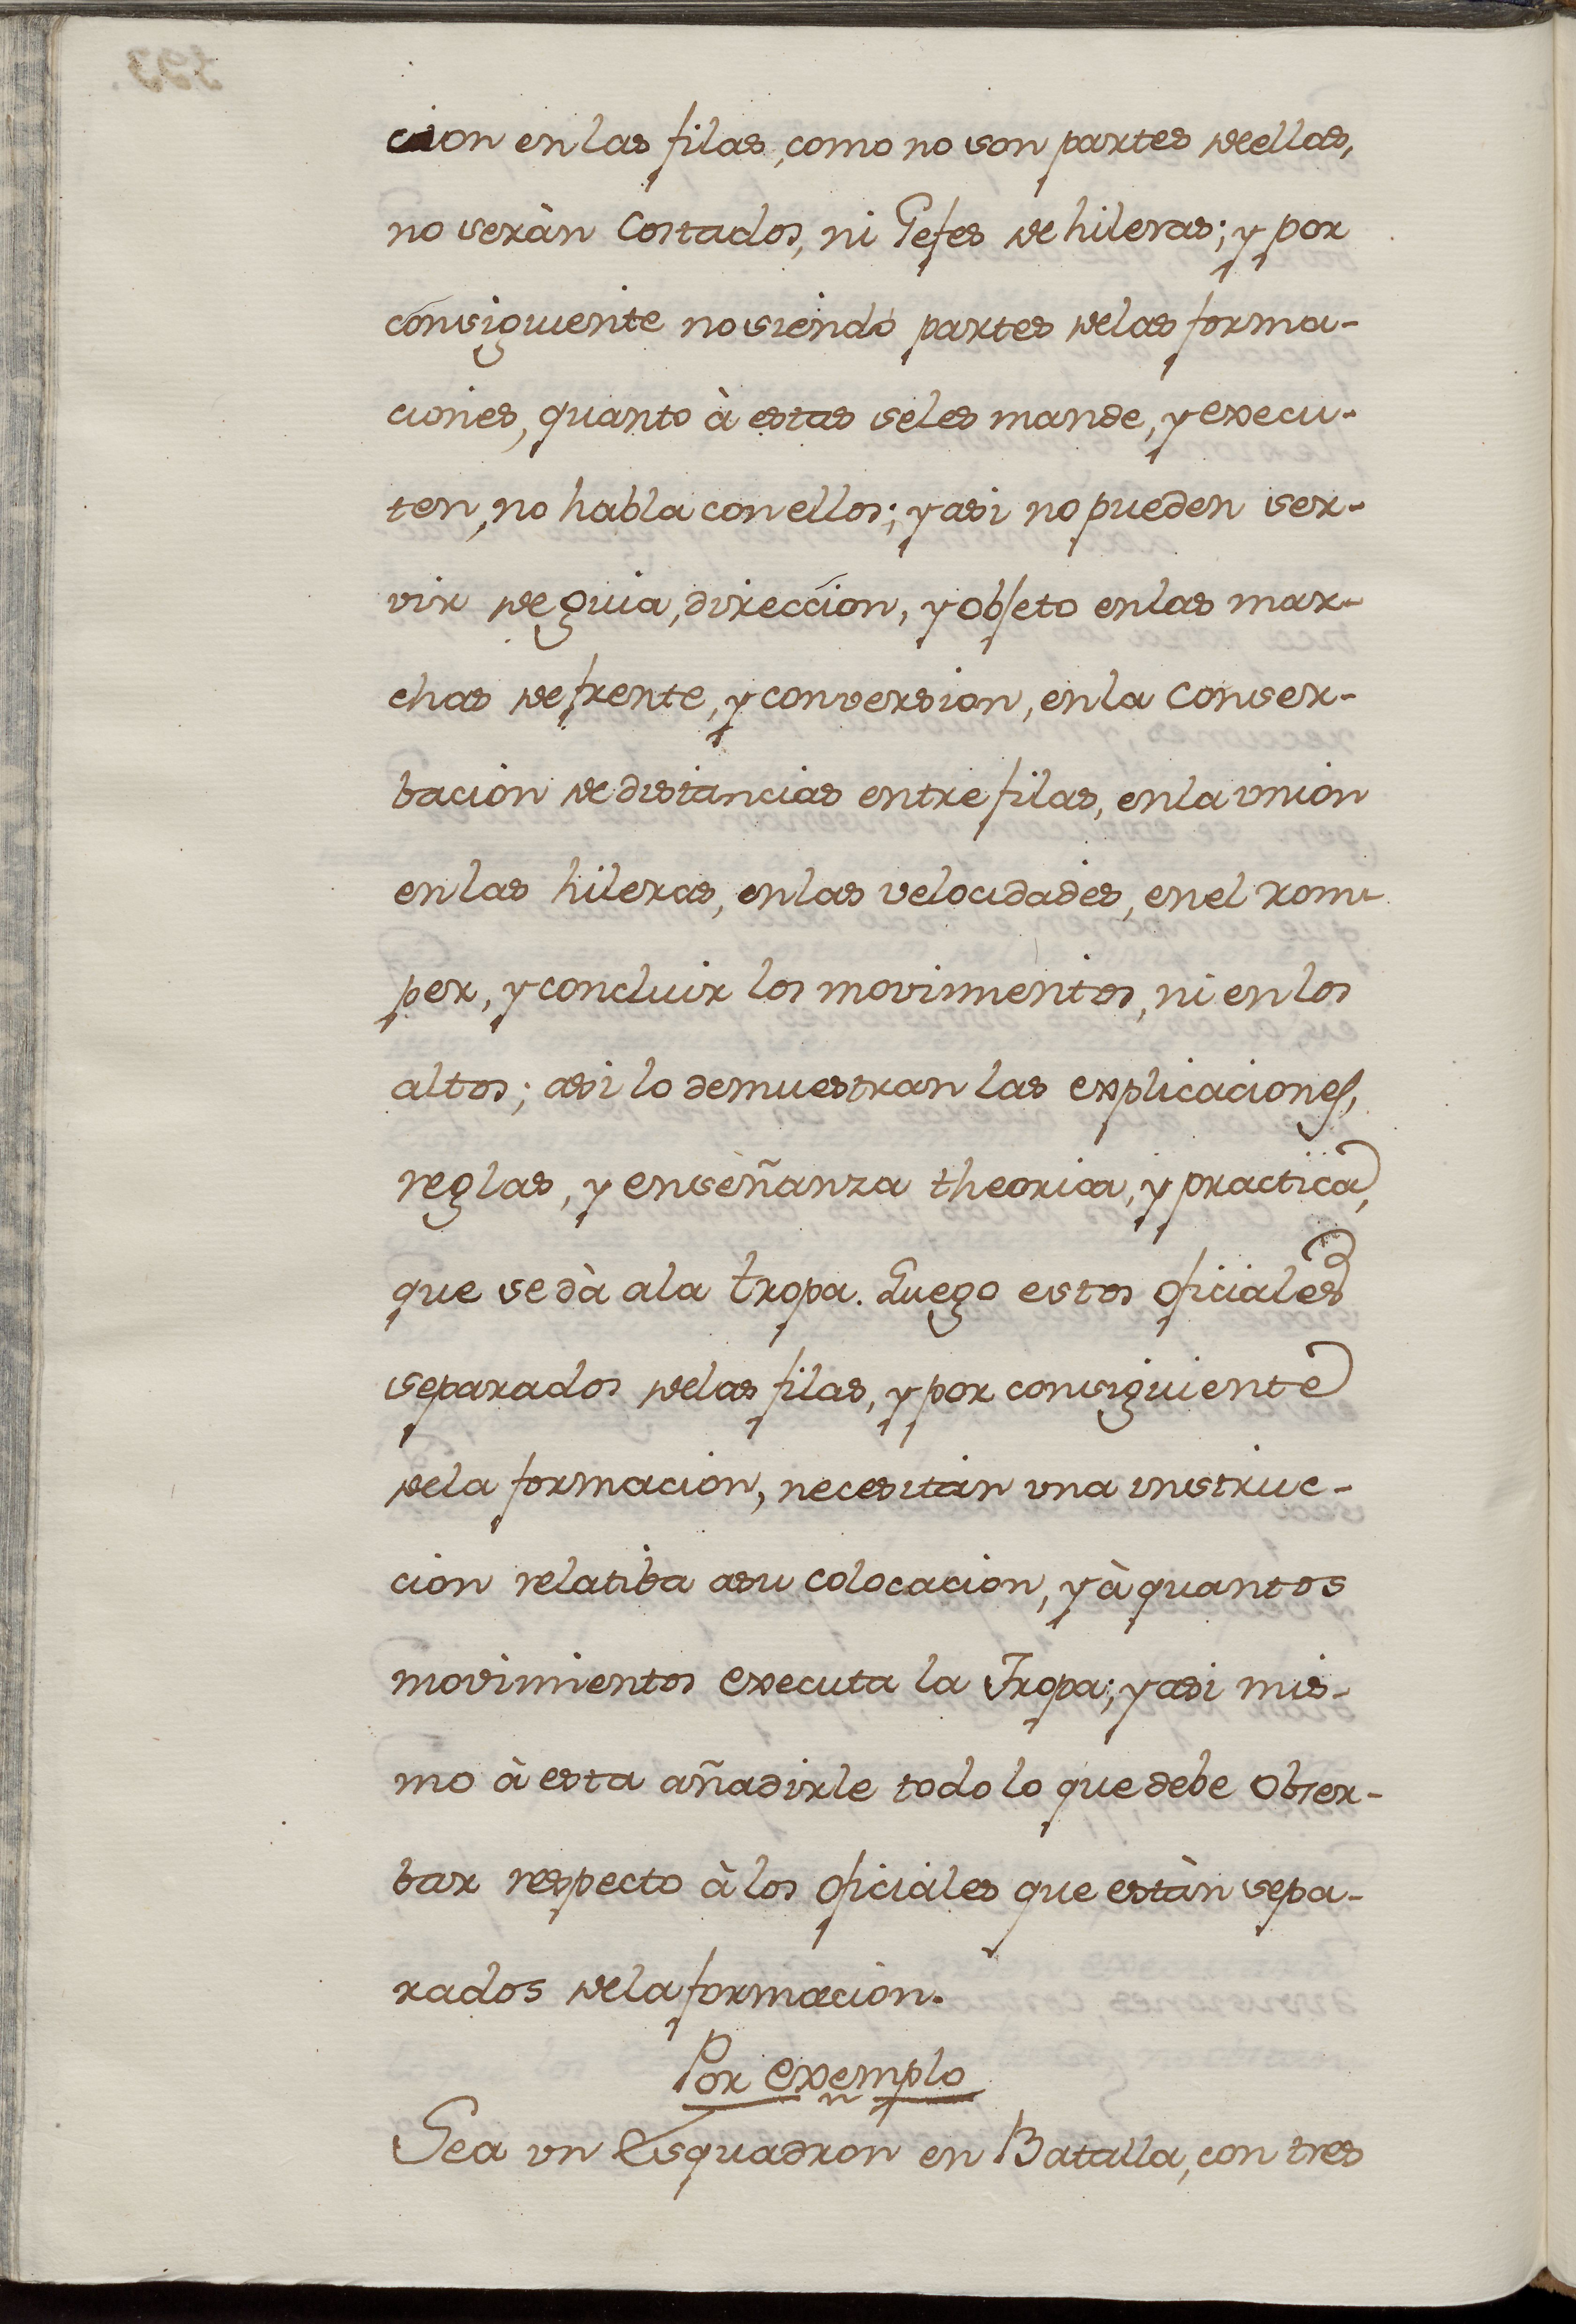 cion en las filas, como no son partes de ellas,
no seràn Costados, ni Gefes de hileras; y por
consiguiente no siendo partes de las forma-
ciones, quanto à estas se les mande, y execu-
ten, no habla con ellos; y asi no pueden ser-
vir de guia, direccion, y objeto en las mar-
chas de frente, y conversion, en la conser-
bacion de distancias entre filas, en la union
en las hileras, en las velocidades, en el rom-
per, y concluir los movimientos, ni en los
altos; asi lo demuestran las explicaciones,
reglas, y enseñanza theorica, y practica,
que se dà a la tropa. Luego estos oficiales
separados de las filas, y por consiguiente
de la formacion, necesitan una instruc-
cion relatiba a su colocacion, y à quantos
movimientos executa la Tropa; y asi mis-
mo à esta añadirle todo lo que debe obser-
bar respecto à los oficiales que estàn sepa-
rados de la formacion.
Por exemplo
Sea un Esquadron en Batalla, con tres